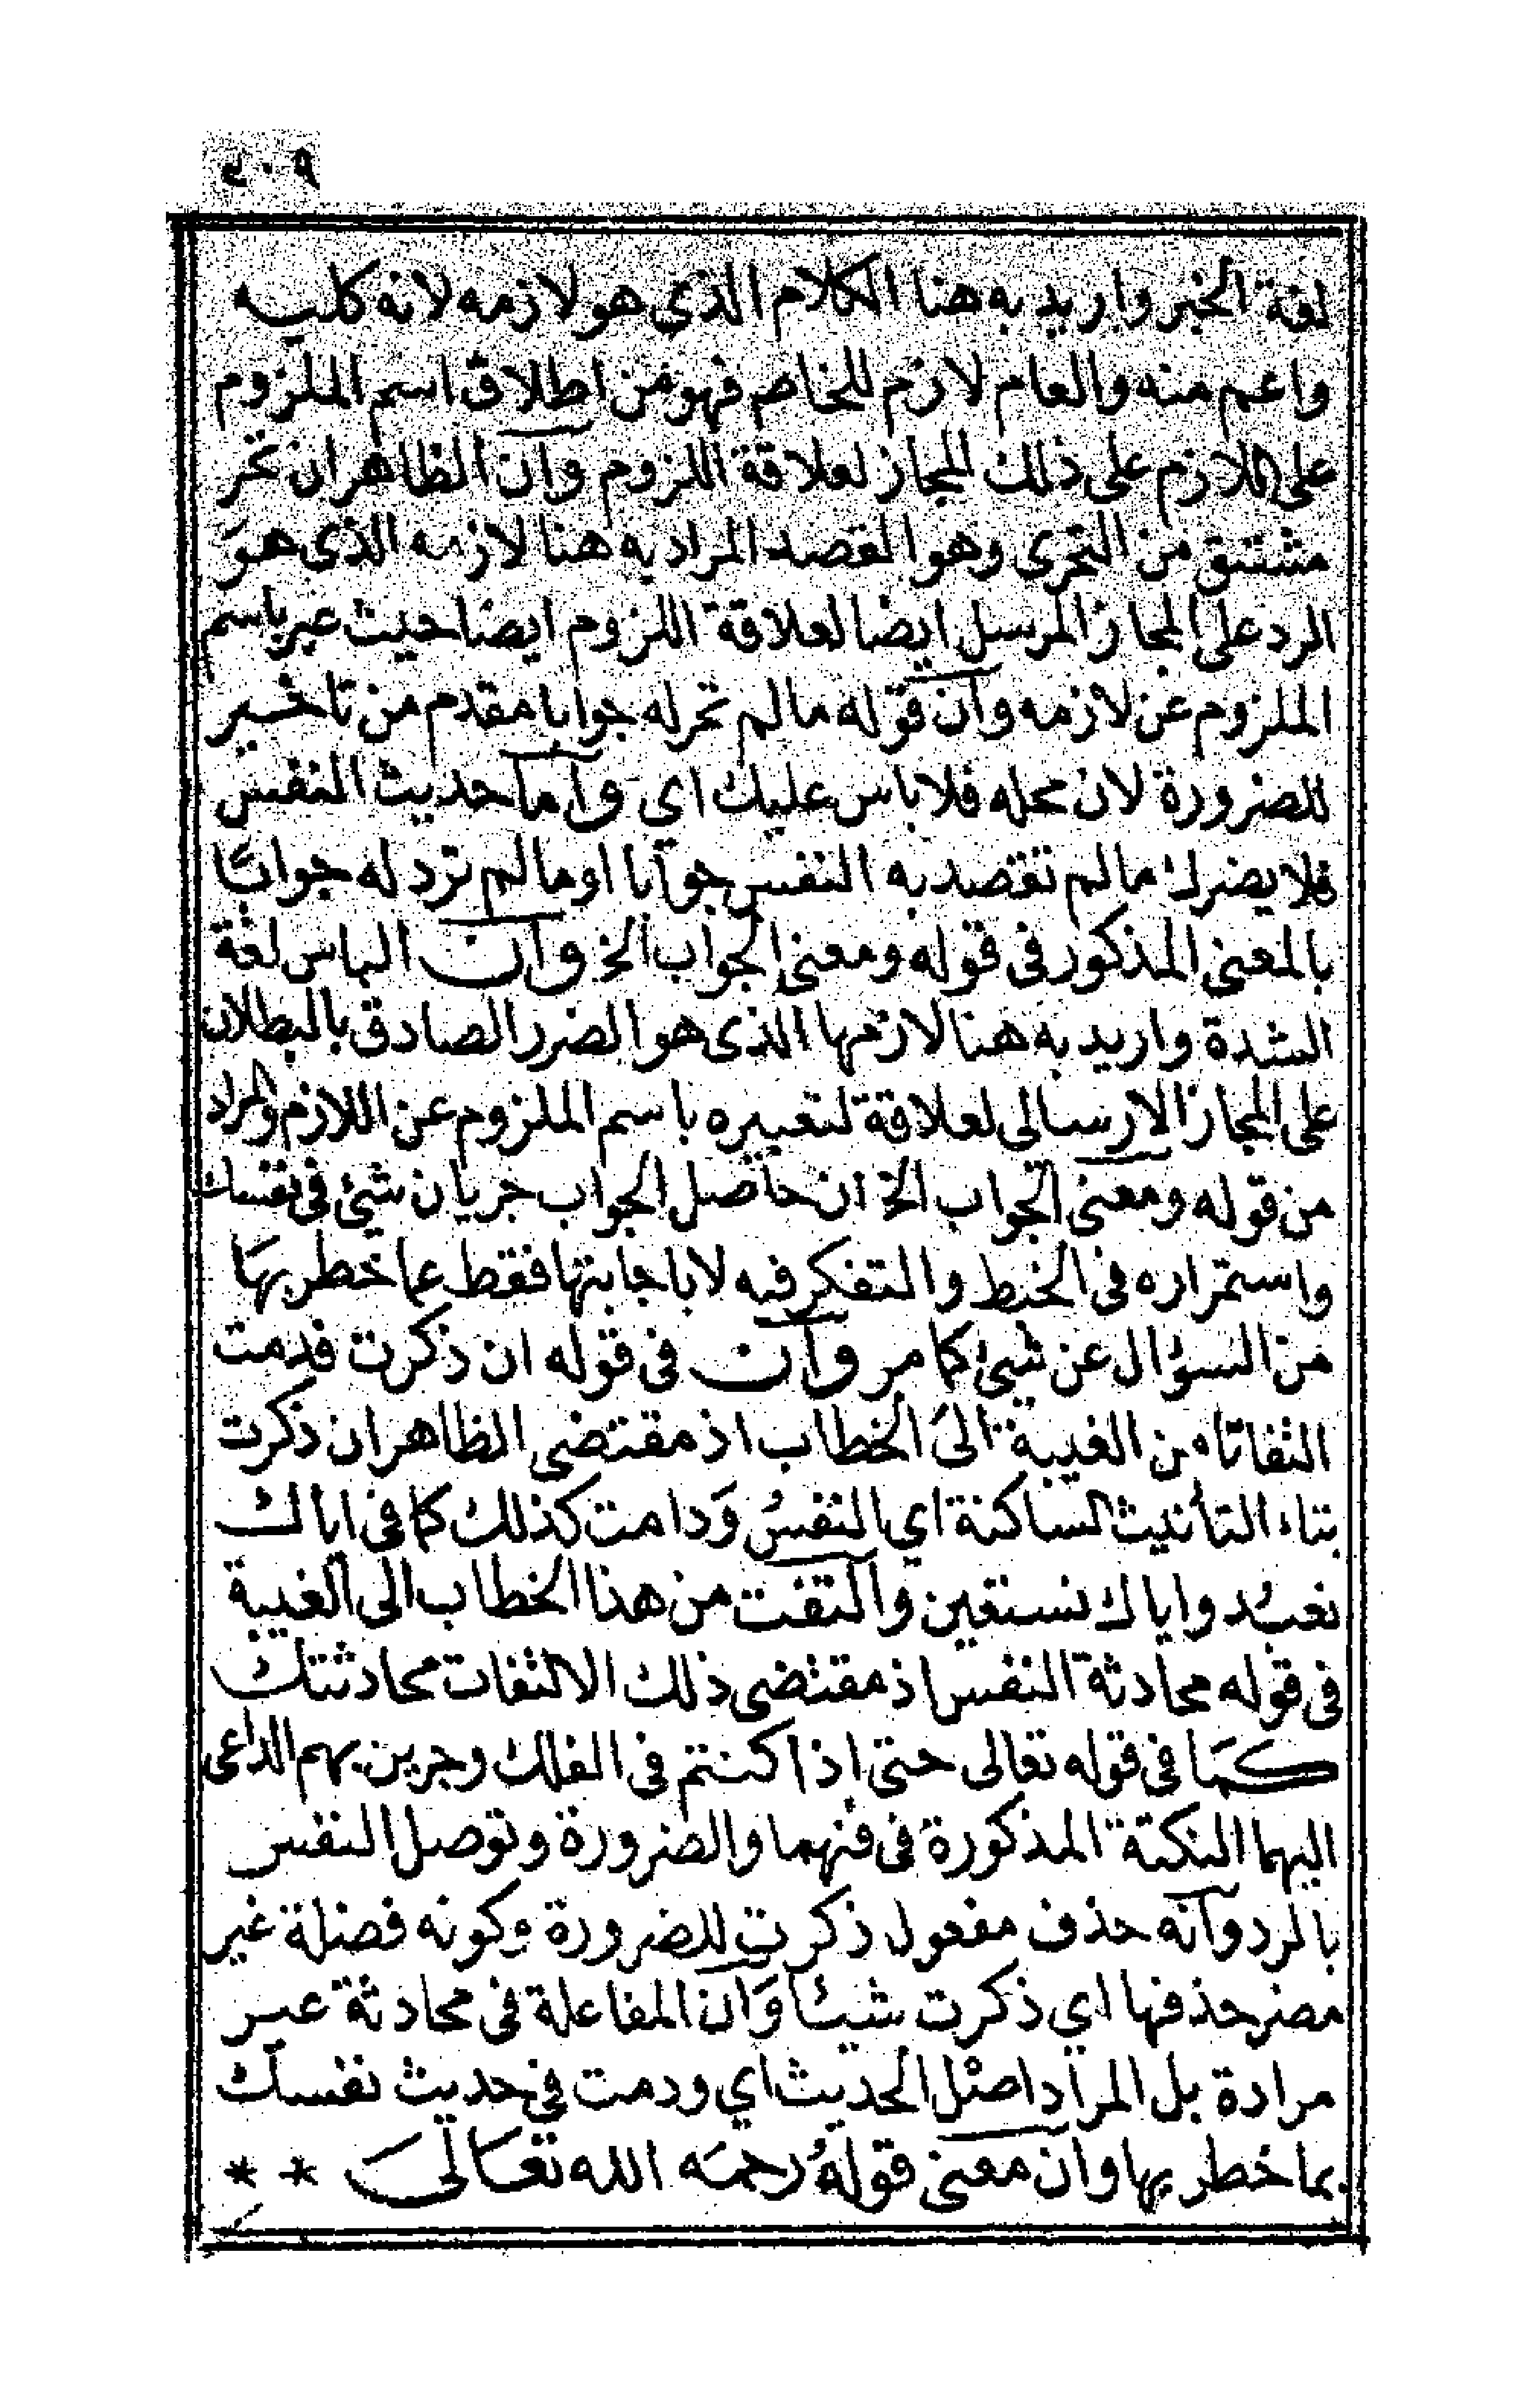 ٩٠٤
لغة الخبر واريد به هنا الكلام الذي هو لازمه لانه كليه
واعم منه والعام لازم للخاص فهو من اطلاق اسم الملزوم
على اللازم على ذلك المجاز لعلاقة اللزوم وان الظاهر ان تحر
مشتق من التحرى وهو القصد المراد به هنا لازمه الذى هوَ
الرد على المجاز المرسل ايضا لعلاقة اللزوم ايضا حيث عبر باسم
الملزوم عن لازمه وان قوله ما لم تحر له جوابا مقدم من تاخير
للضرورة لان محله فلا باس عليك اي واما حديث النفس
فلا يضرك ما لم تقصد به النفس جوابا او ما لم ترد له جوابًا
بالمعنى المذكور فى قوله ومعنى الجواب الخ وان الباس لغة
الشدة واريد به هنا لازمها الذى هو الضرر الصادق بالبطلان
على المجاز الارسالى لعلاقة لتعبيره باسم الملزوم عن اللازم والمراد
من قوله ومعنى الجواب الخ ان حاصل الجواب جريان شيئ فى نفسك
واستمراره فى الخبط والتفكر فيه لا باجابتها فقط عما خطر بهَا
من السؤال عن شيئ كما مر وان فى قوله ان ذكرت فدمت
التفاتا من الغيبة الىَ الخطاب اذ مقتضى الظاهر ان ذكرت
بتاء التأنيث الساكنة اي النفسُ وَدامت كذلك كما فى اياك
نعبُد واياك نستعين والتفت من هذا الخطاب الى الغيبة
فى قوله محادثة النفس اذ مقتضى ذلك الالتفات محادثتك
كمَا فى قوله تعالى حتى اذا كنتم فى الفلك وجرين بهم الداعى
اليهما النكتة المذكورة فى فنهما والضرورة وتوصل النفس
بالرد وانه حذف مفعول ذكرت للضرورة وكونه فضلة غير
مضر حذفها اي ذكرت شيئا وَان المفاعلة فى محادثة غير
مرادة بل المراد اصْل الحديث اي ودمت فى حديث نفسك
بما خطر بها وان معنى قولهُ رحمَه الله تعَالىَ * *